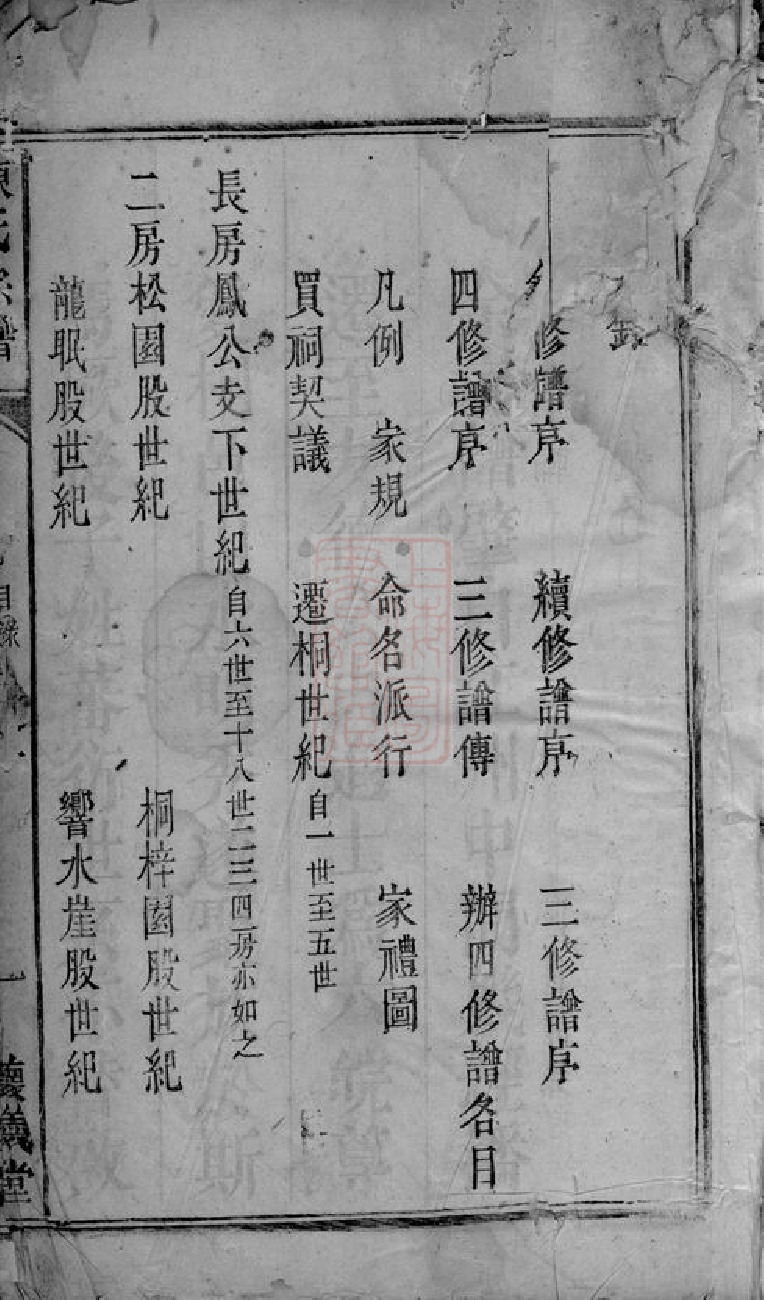 錄
修譜序 續修譜序 三修譜序
四修譜序 三修譜傳 辦四修譜名目
凡例 家規 命名派行 家禮圖
買祠契議 遷桐世紀自一世至五世
長房鳳公支下世紀自六世至十八世二三四房亦如之
二房松園股世紀 桐梓園股世紀
龍眠股世紀 響水崖股世紀
氏宗譜 目錄 一 儀堂